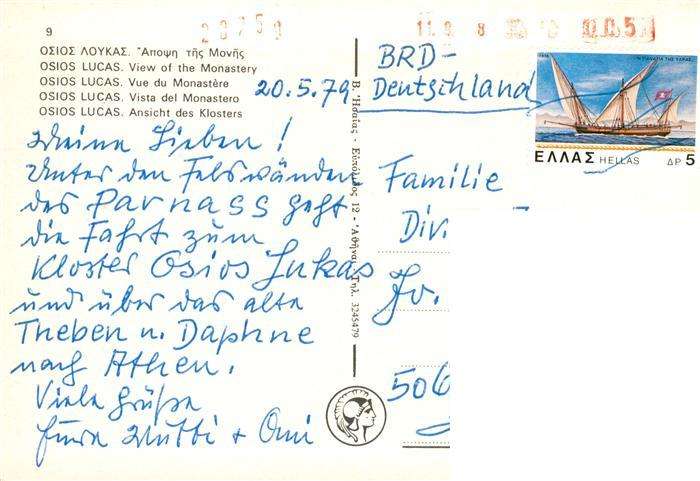 9
ΟΣΙΟΣ ΛΟΥΚΑΣ. Ἄποψη τῆς Μονῆς
OSIOS LUCAS. View of the Monastery
OSIOS LUCAS. Vue du Monastère
OSIOS LUCAS. Vista del Monastero
OSIOS LUCAS. Ansicht des Klosters
20.5.79
Meine Lieben!
Unter den Felswänden
des Parnass geht
die Fahrt zum
Kloster Osios Lukas
und über das alte
Theben u. Daphne
nach Athen.
Viele Grüße
Eure Mutti + Omi
Β. Ἡσαίας - Εὐπόλιδος 12 - Ἀθῆναι - Τηλ. 3245479
BRD-
Deutschland
ΕΛΛΑΣ HELLAS ΔΡ 5
Familie
Div.
Jo.
506